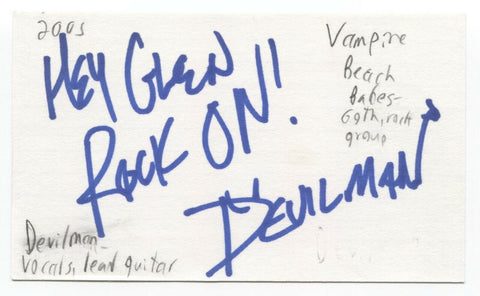 2005
HEY GLEN
ROCK ON!
DEVILMAN
Vampire
Beach
Babes-
Goth, rock
group
Devilman-
vocals, lead guitar